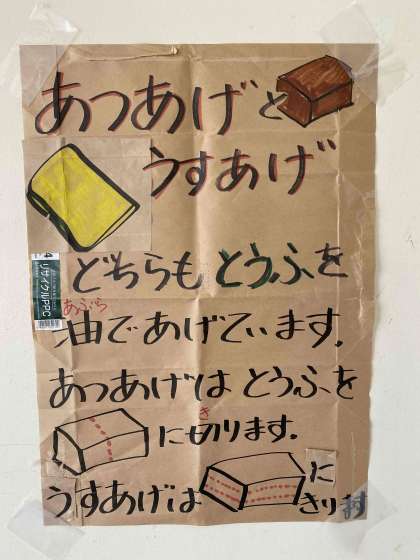 あつあげと
うすあげ
どちらもとうふを
4
リサイクルPPC
あぶら
油であげています。
あつあげはとうふを
き
に切ります。
うすあげは に
きります